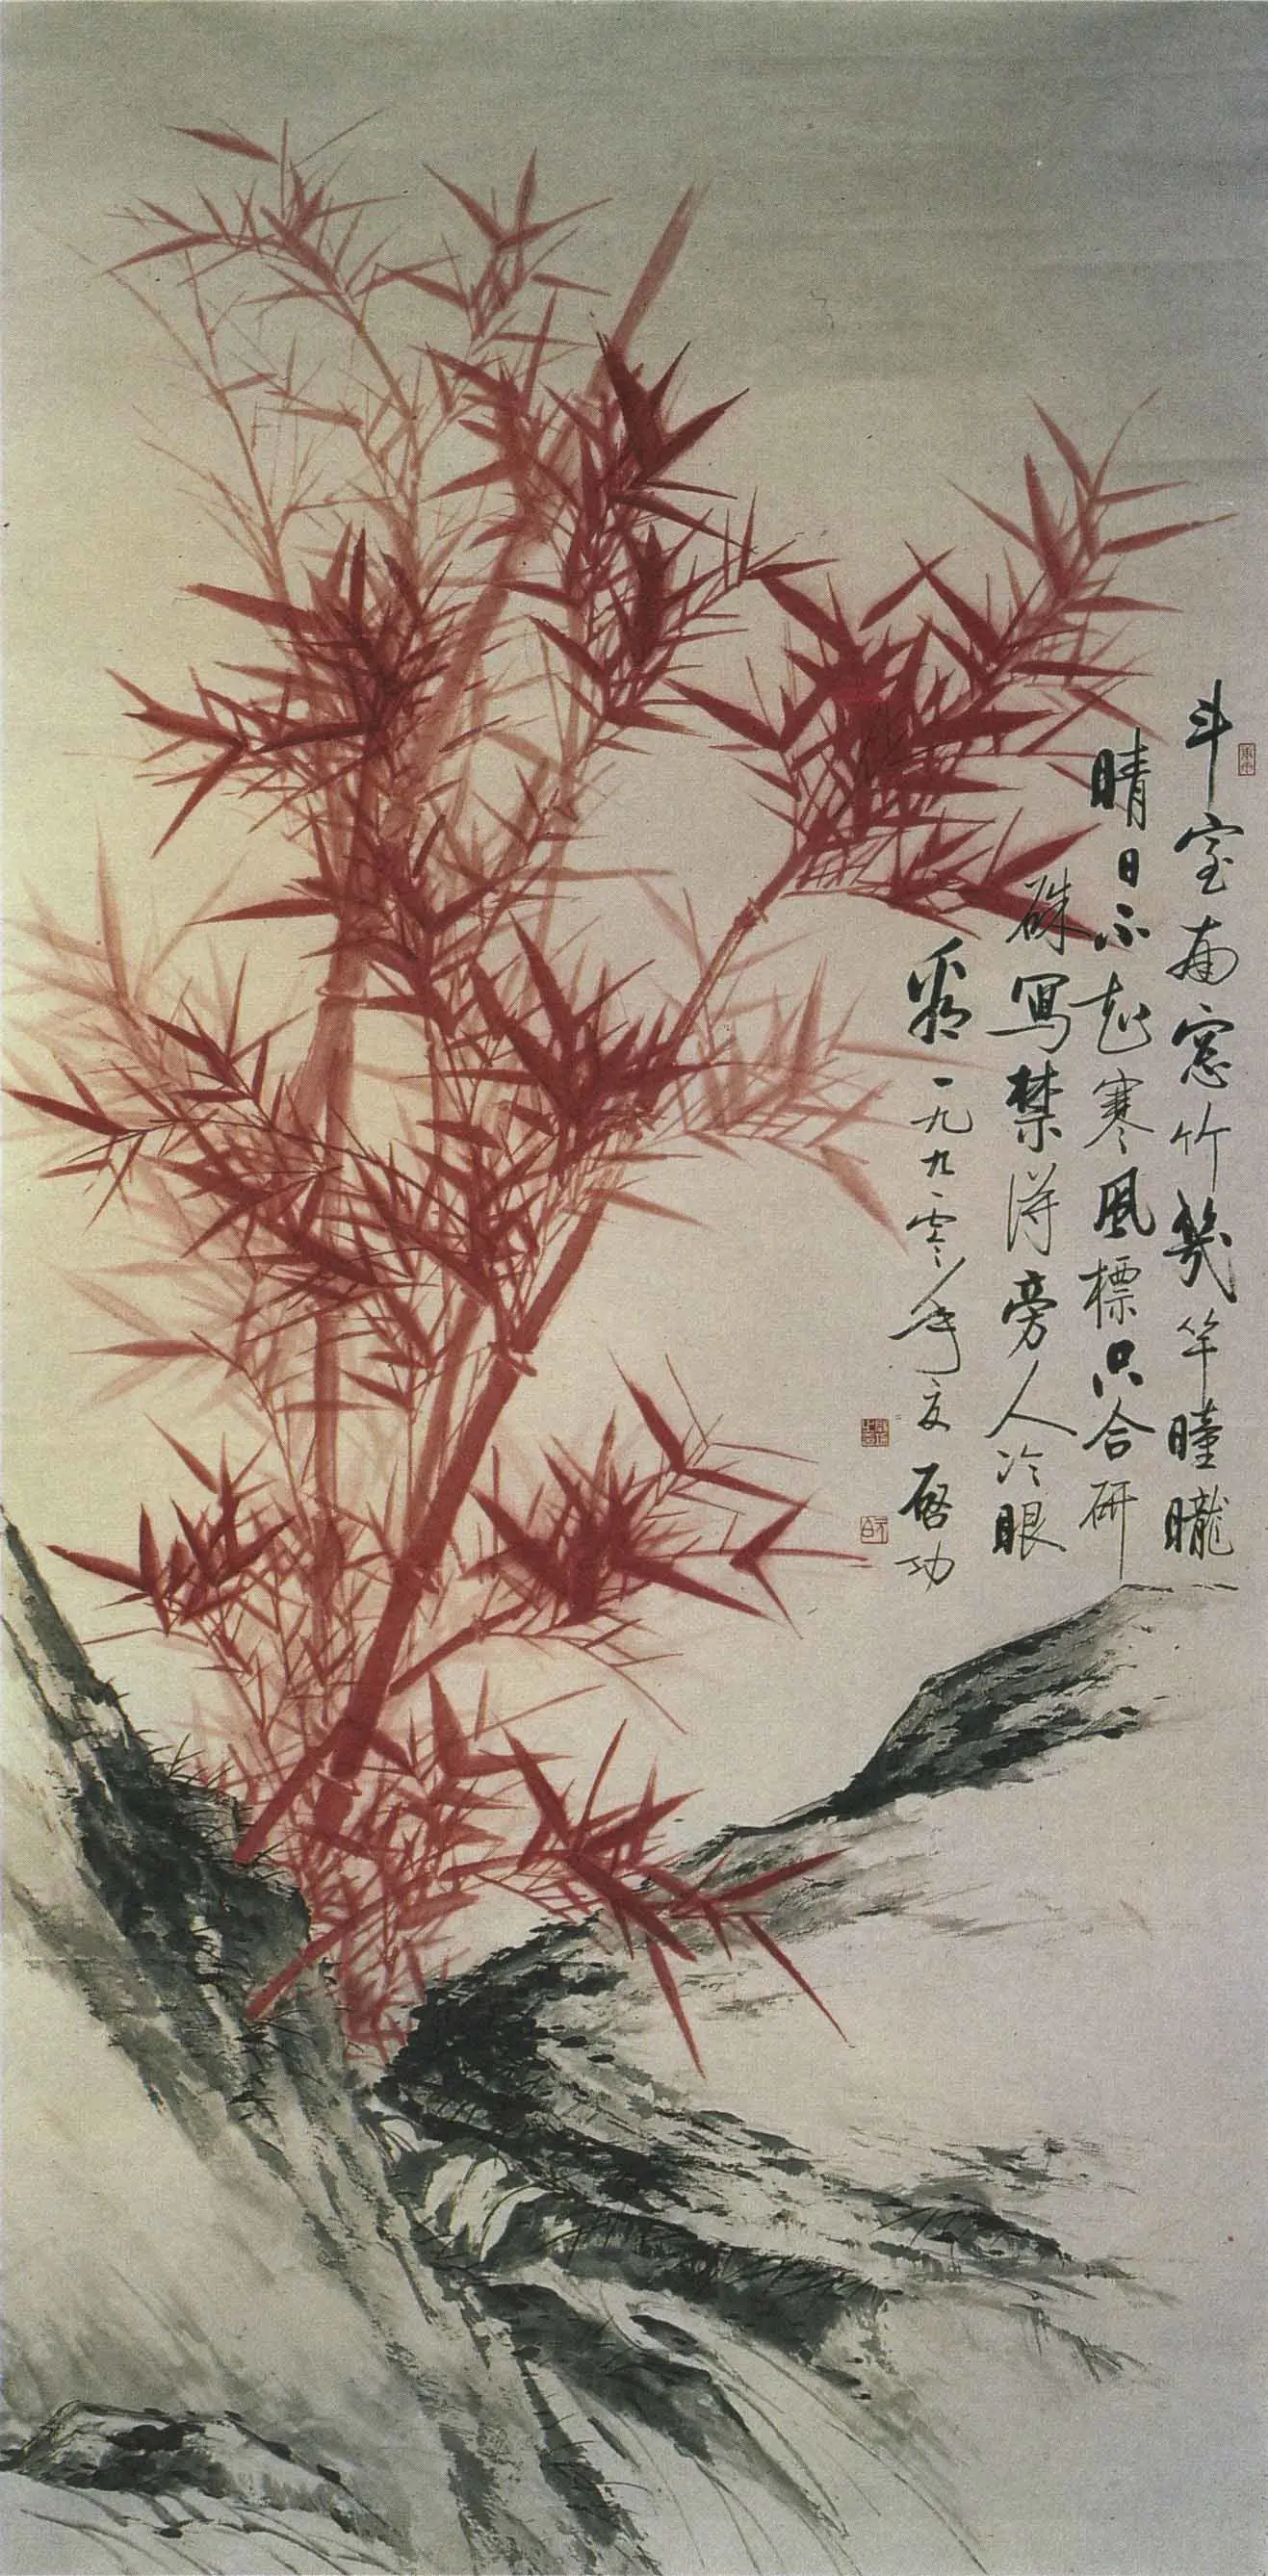 斗室南窓竹幾竿曈曨
晴日不知寒風標只合研
硃寫禁得旁人冷眼
看 一九九零年夏 啓功
元白